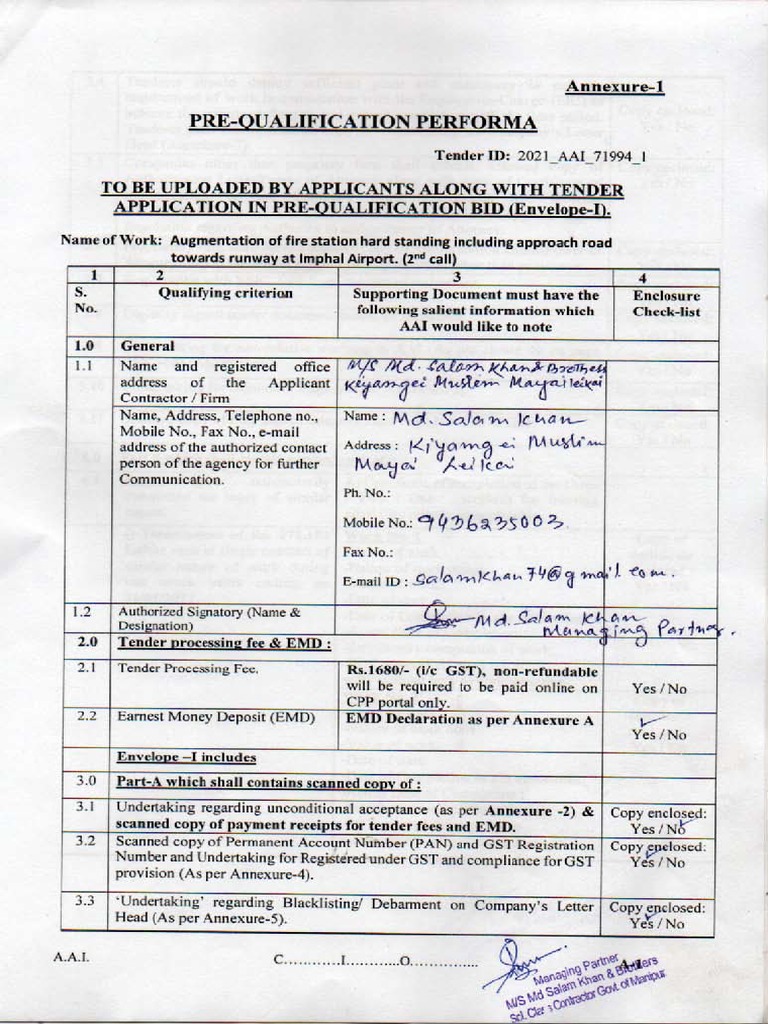 Annexure-1
PRE-QUALIFICATION PERFORMA
Tender ID: 2021_AAI_71994_1
TO BE UPLOADED BY APPLICANTS ALONG WITH TENDER
APPLICATION IN PRE-QUALIFICATION BID (Envelope-I).
Name of Work: Augmentation of fire station hard standing including approach road
towards runway at Imphal Airport. (2nd call)
1 2 3 4
S. No. Qualifying criterion Supporting Document must have the following salient information which AAI would like to note Enclosure Check-list
1.0 General
1.1 Name and registered office
address of the Applicant
Contractor / Firm
M/S Md. Salam Khan & Brothers
Kiyamgei Muslim Mayai leikai
Name, Address, Telephone no.,
Mobile No., Fax No., e-mail
address of the authorized contact
person of the agency for further
Communication.
Name : Md. Salam Khan
Address : Kiyamgei Muslim
Mayai Leikai
Ph. No.:
Mobile No.: 9436235003.
Fax No.:
E-mail ID : salamkhan74@gmail.com.
1.2 Authorized Signatory (Name &
Designation)
Md. Salam Khan
Managing Partner.
2.0 Tender processing fee & EMD :
2.1 Tender Processing Fee.
Rs.1680/- (i/c GST), non-refundable
will be required to be paid online on
CPP portal only.
Yes / No
2.2 Earnest Money Deposit (EMD) EMD Declaration as per Annexure A
Yes / No
Envelope –I includes
3.0 Part-A which shall contains scanned copy of :
3.1 Undertaking regarding unconditional acceptance (as per Annexure -2) &
scanned copy of payment receipts for tender fees and EMD.
Copy enclosed:
Yes / No
3.2 Scanned copy of Permanent Account Number (PAN) and GST Registration
Number and Undertaking for Registered under GST and compliance for GST
provision (As per Annexure-4).
Copy enclosed:
Yes / No
3.3 ‘Undertaking’ regarding Blacklisting/ Debarment on Company’s Letter
Head (As per Annexure-5).
Copy enclosed:
Yes / No
A.A.I. C............I...........O...............
Managing Partner
M/S Md Salam Khan & Brothers
Spl. Class Contractor Govt. of Manipur